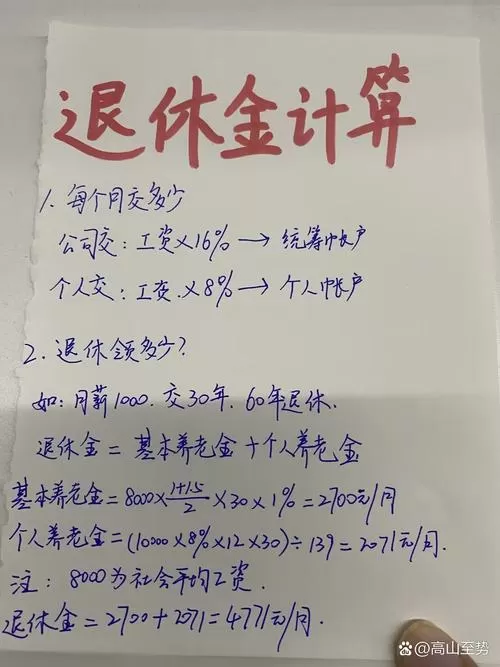 退休金计算
1. 每个月交多少
公司交：工资×16% → 统筹帐户
个人交：工资×8% → 个人帐户
2. 退休领多少？
如：月薪1000. 交30年. 60年退休.
退休金 = 基本养老金 + 个人养老金
基本养老金 = 8000×(1+1.5)/2×30×1% = 2700元/月
个人养老金 = (10000×8%×12×30)÷139 = 2071元/月.
注：8000为社会平均工资.
退休金 = 2700+2071 = 4771元/月.
高山至势